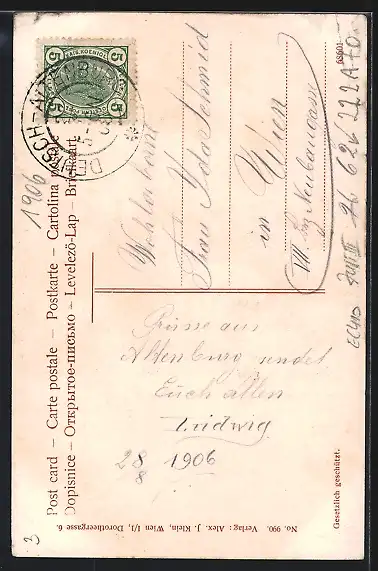 Post card – Carte postale – Postkarte – Cartolina
Dopisnice – Открытое-письмо – Levelező-Lap – Briefkaart
1906
5 5
5 5
DEUTSCH-ALTENBURG
Wohlgeboren
Frau Ida Schmid
in Wien
VII. Neubaugasse
68601
Grüsse aus
Altenburg sendet
Euch allen
Ludwig
28 1906
8
No. 990. Verlag: Alex. J. Klein, Wien I/1, Dorotheergasse 6.
Gesetzlich geschützt.
3